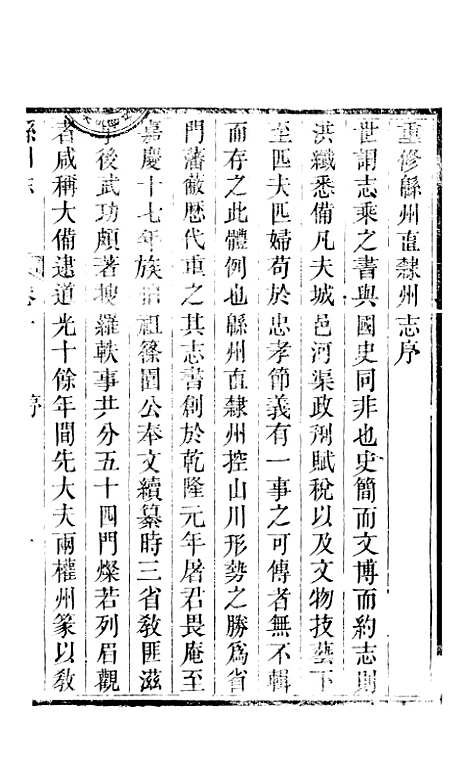 重修緜州直隸州志序
世謂志乘之書與國史同非也史簡而文博而約志則
洪纖悉備凡夫城邑河渠政刑賦稅以及文物技藝下
至匹夫匹婦苟於忠孝節義有一事之可傳者無不輯
而存之此體例也緜州直隸州控山川形勢之勝爲省
門藩蔽歷代重之其志書創於乾隆元年屠君畏庵至
嘉慶十七年族伯祖篠園公奉文續纂時三省敎匪滋
事後武功頗著搜羅軼事共分五十四門燦若列眉觀
者咸稱大備逮道光十餘年間先大夫兩權州篆以敎
緜州志 卷 序